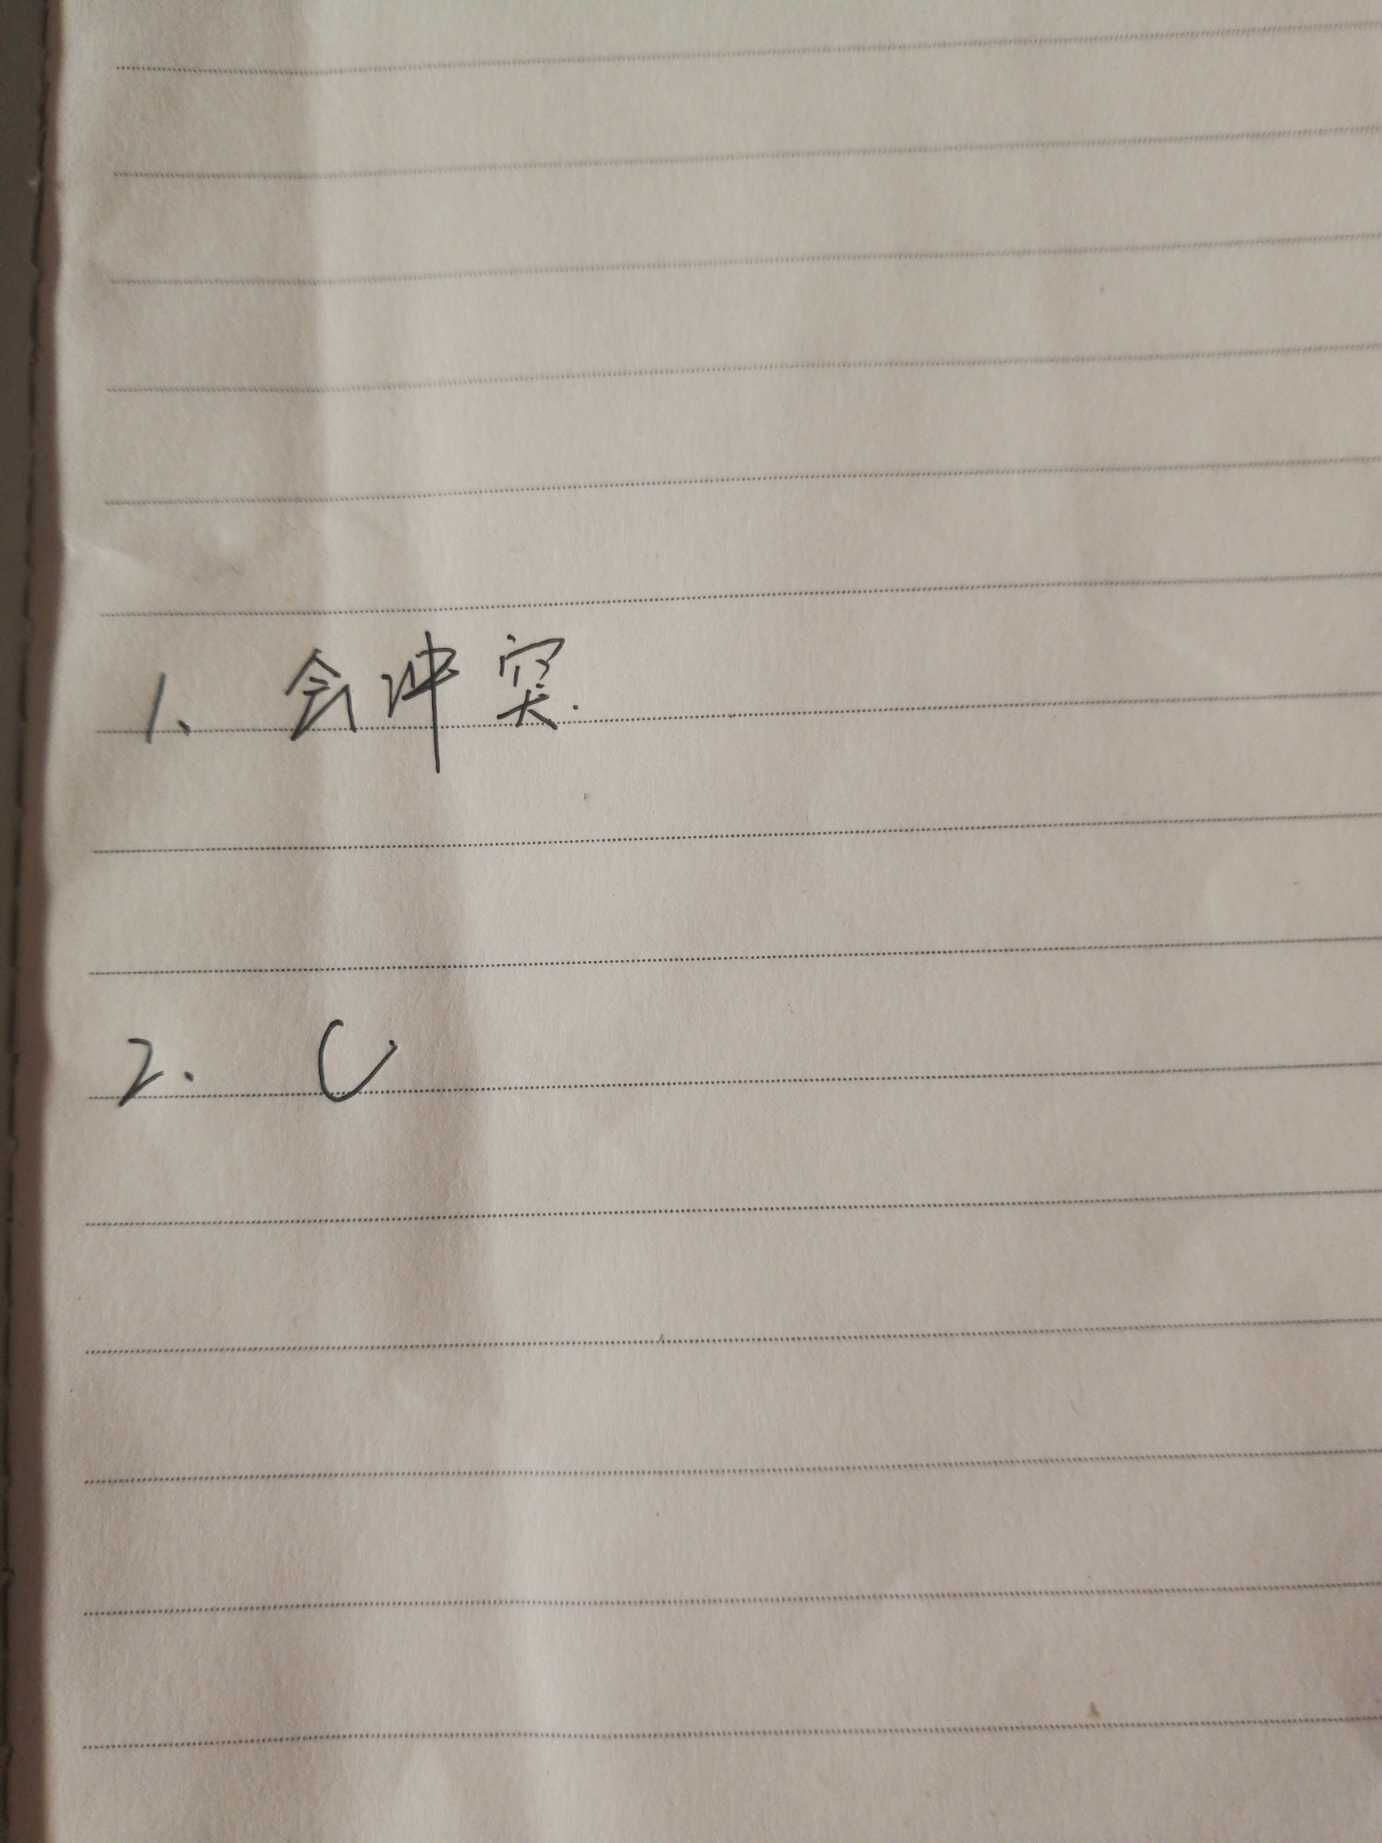 1、会冲突.
2. C